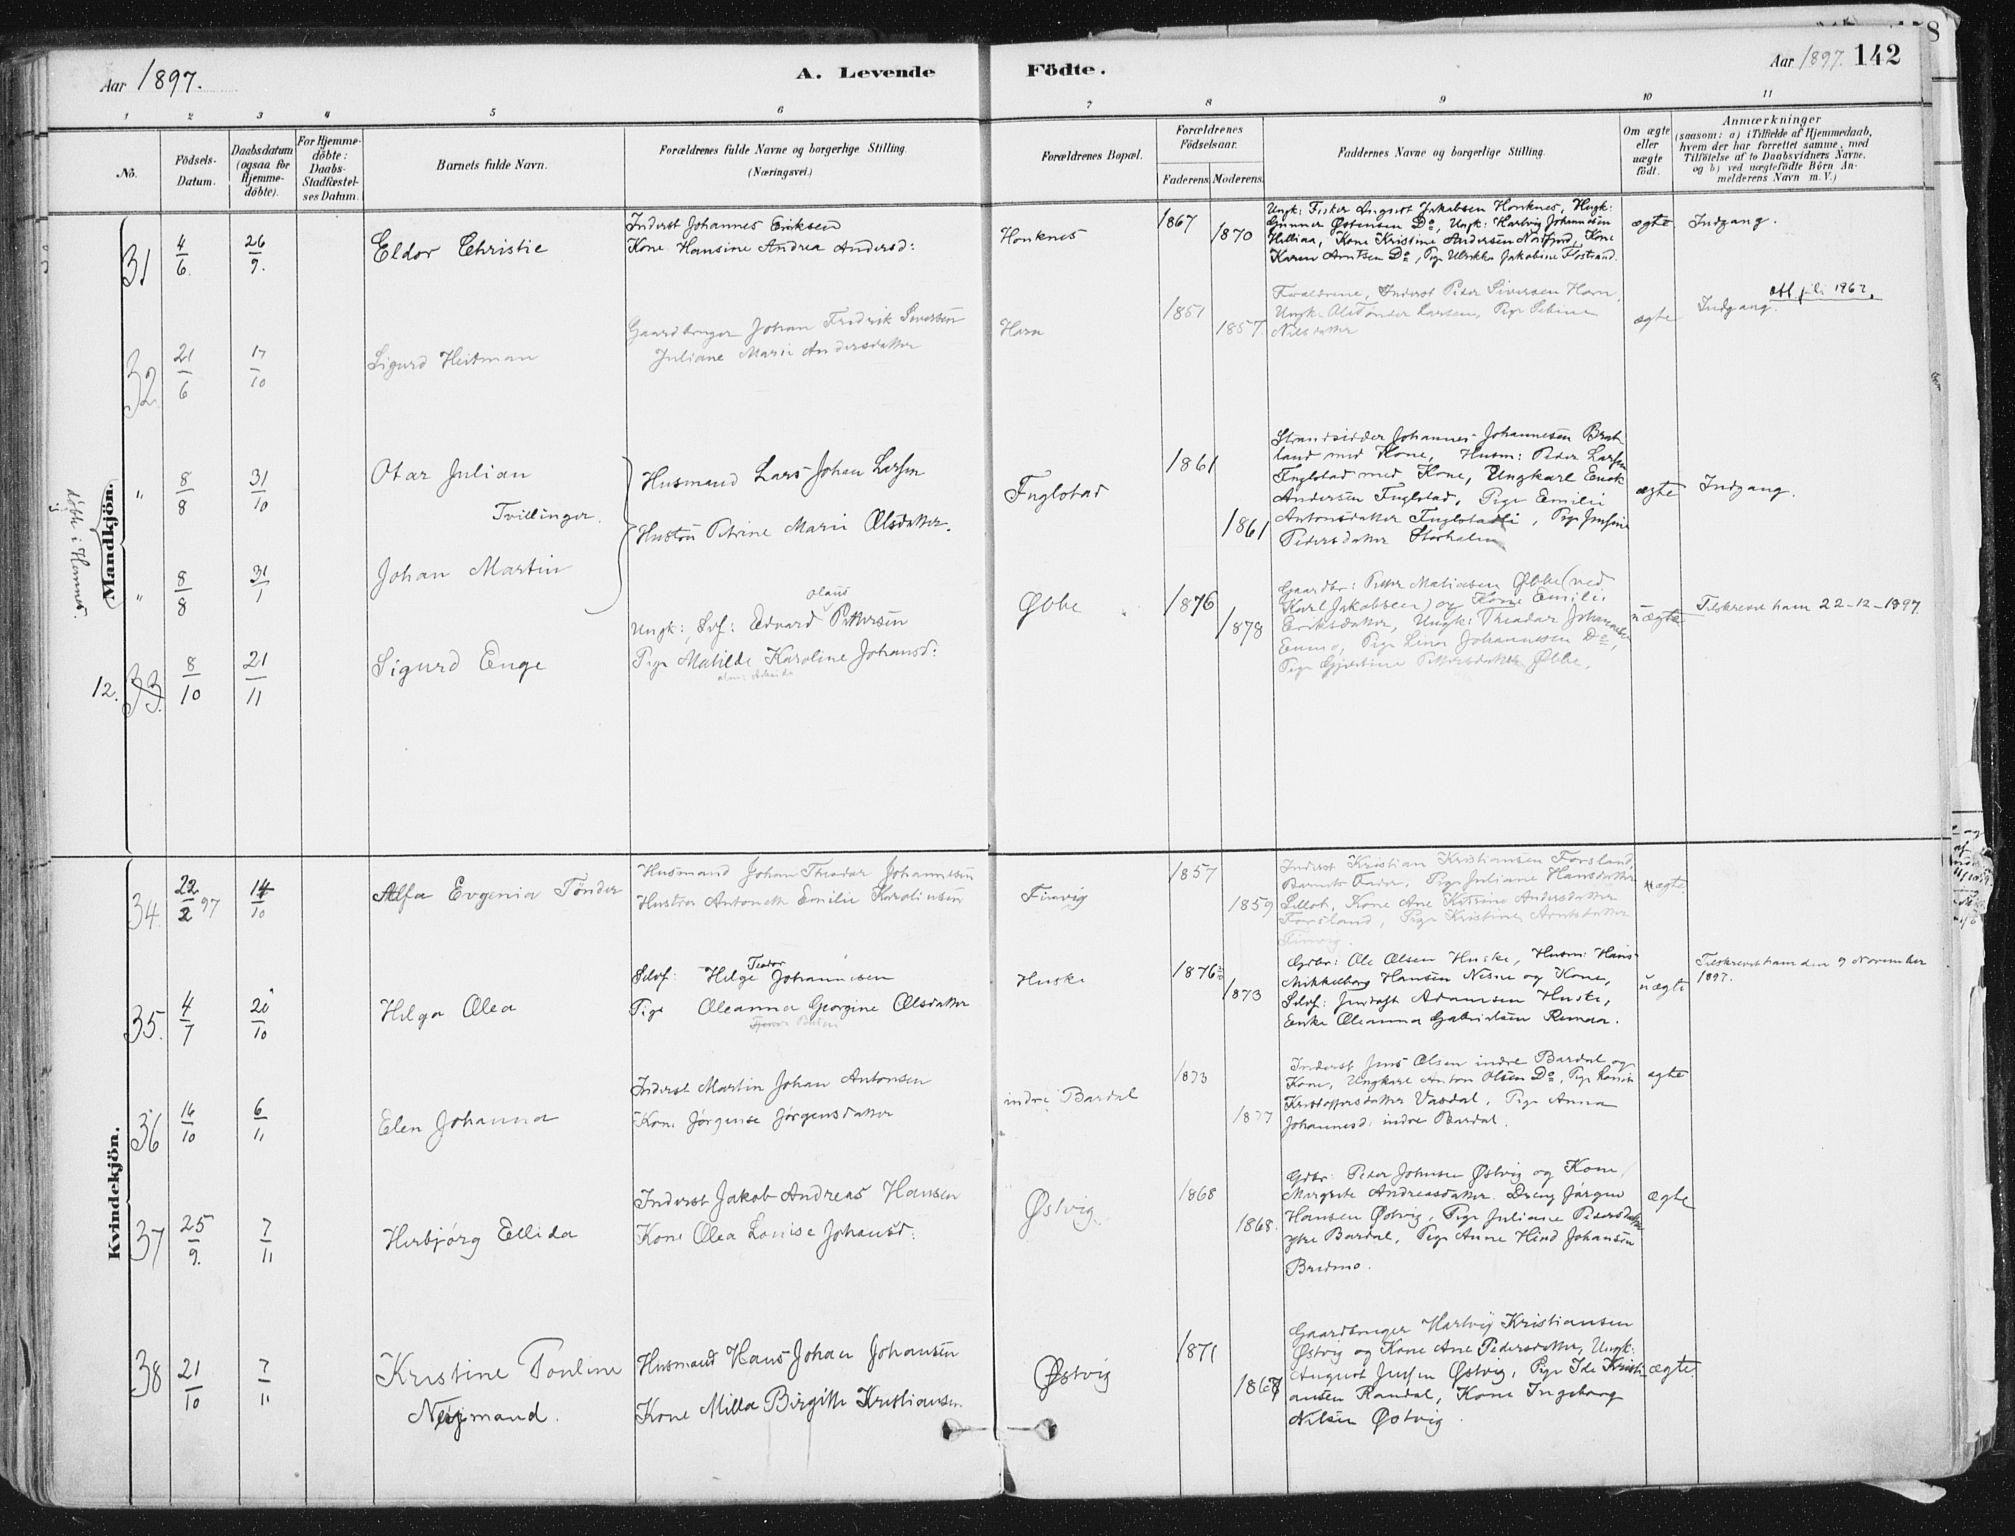 Aar 1897.
A. Levende Födte.
Aar 1897. 142
1 2 3 4 5 6 7 8 9 10 11
No.
Födsels-Datum.
Daabsdatum (ogsaa for Hjemme-döbte).
For Hjemme-döbte: Daabs-Stadfæstel-ses Datum.
Barnets fulde Navn.
Forældrenes fulde Navne og borgerlige Stilling.
(Næringsvei.)
Forældrenes Bopæl.
Forældrenes Födselsaar.
Faderens. Moderens.
Faddernes Navne og borgerlige Stilling.
Om ægte eller uægte födt.
Anmærkninger
(saasom: a) i Tilfælde af Hjemmedaab,
hvem der har forrettet samme, med
Tilföielse af to Daabsvidners Navne,
og b) ved uægtefödte Börn An-
melderens Navn m. V.)
Mandkjön.
döbte i Hemnes.
31 4/6. 26/9. Eldor Christie
Inderst Johannes Eriksen
Kone Hansine Andrea Andersd:
Honknes
1867
1870
Ungk: Fisker August Jakobsen Honknes, Ungk:
Gunner Östensen Do, Ungk: Hartvig Johannesen
Kone Kristine Andersen Kone
Karen Arntsen Do, Pige Ulrikke Jakobine
ægte
Indgang.
32 21/6 17/10 Sigurd Heitman
Gaardbruger Johan Fredrik Sivertsen
Juliane Marie Andersdatter
Havn
1851
1857
Forældrene, Inderst Peder Siversen Havn,
Ungk. Ole Tönder Larsen, Pige Sebine
Nilsdatter
ægte
Indgang.
att. juli 1962.
" 8/8 31/10 Otar Julian
Tvillinger.
" 8/8 31/1 Johan Martin
Husmand Lars Johan Larsen
Hustru Petrine Marie Olsdatter.
Fuglstad
1861
1861
Strandsidder Johannes Johannesen Brat-
land med Kone, Husm: Peder Larsen
Fuglstad med Kone, Ungkarl Enok
Andersen Fuglstad, Pige Emilie
Antonsdatter, Pige
Pedersdatter Storhalm
ægte
Indgang.
12. 33. 8/10 21/11 Sigurd Enge
Olaus
Ungk: Self: Edvard Pettersen
Pige Matilde Karoline Johansd:
Øbbe
1876
1878
Gaardbr: Petter Matiasen Øbbe (ved
Karl Jakobsen) og Kone Emilie
Eriksdatter, Ungk: Theodor Johannesen
Pige Lina Johannesen Do,
Pige Pettersdatter Øbbe.
uægte
Tilskrevet ham 22-12-1897
Kvindekjön.
34. 22/2 97 14/10 Alfa Evgenia Tönder
Husmand Johan Theodor Johannesen
Hustru Antonette Emilie Karoliusen
Finvig
1857
1859
Inderst Kristian Kristiansen Forsland,
Barnets Fader, Pige Juliane Hansdatter
Kone Ane Andersdatter
Forsland, Pige Kristine Arntsdatter
Finvig.
ægte
35. 4/7 20/10 Helga Olea
Teodor
Selvf: Helge Johannesen
Pige Oleanna Georgine Olsdatter
Huske
1876
1873
Gdbr: Ole Olsen Huske, Husm: Hans
Mikkelborg Hansen Nesne og Kone,
Selvf: Adamsen Huske,
Enke Oleanna Gabrielsen Remaa.
uægte
Tilskrevet ham den 9 November
1897.
36 16/10 6/11 Elen Johanna
Inderst Martin Johan Antonsen
Kone Jörgense Jörgensdatter
indre Bardal
1873
1877
Inderst Jens Olsen indre Bardal og
Kone, Ungkarl Anton Olsen Do, Pige
Kristoffersdatter Vasdal, Pige Anna
Johannesd: indre Bardal.
ægte
37 25/9. 7/11 Herbjörg Ellida
Inderst Jakob Andreas Hansen
Kone Olea Louise Johansd:
Østvig
1868
1868.
Gdbr: Peder Johnsen Østvig og Kone
Margrete Andreasdatter. Dreng Jörgen
Hansen Østvig, Pige Juliane Pedersdatter
ytre Bardal, Pige Anne Hind Johansen
Bredmo.
ægte
38 21/10 7/11 Kristine Pouline
Nejmand.
Husmand Hans Johan Johansen
Kone Milla Birgitte Kristiansen
Østvig
1871
1867
Gaardbruger Hartvig Kristiansen
Østvig og Kone Ane Pedersdatter, Ungk:
August Jensen Østvig, Pige Ida Kristi-
ansen Randal, Kone Ingeborg
Nilsen Østvig.
ægte